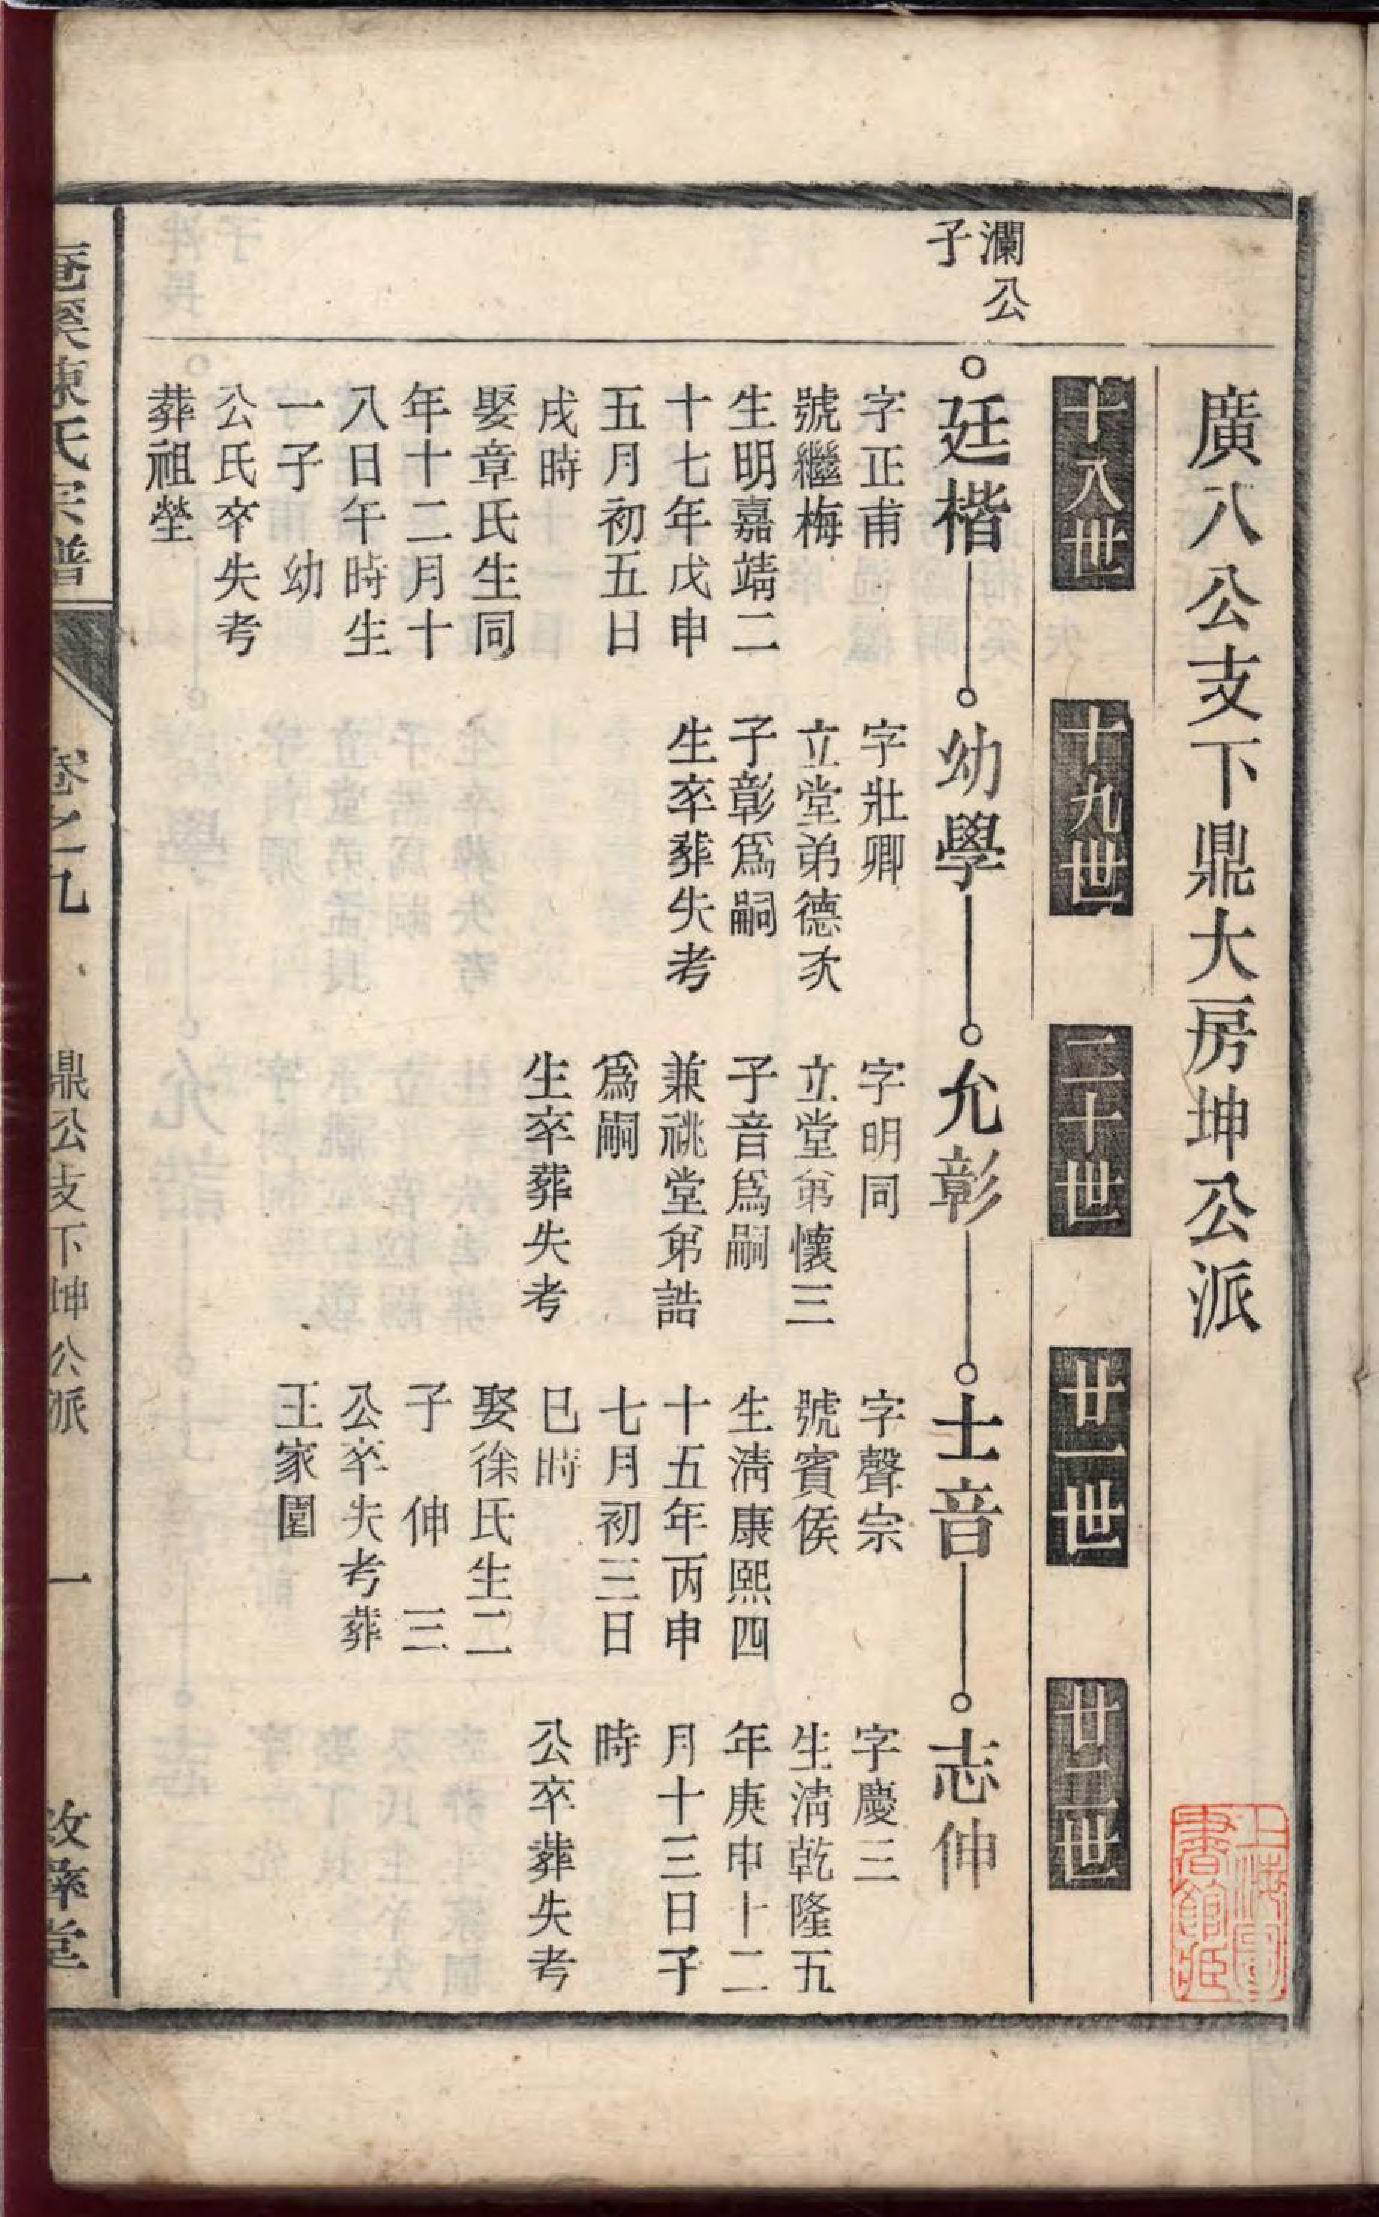 廣八公支下鼎大房坤公派
十八世
十九世
二十世
廿一世
廿二世
瀾公
子
廷楷
字正甫
號繼梅
生明嘉靖二
十七年戊申
五月初五日
戌時
娶章氏生同
年十二月十
八日午時生
一子 幼
公氏卒失考
葬祖塋
幼學
字壯卿
立堂弟德次
子彰爲嗣
生卒葬失考
允彰
字明同
立堂弟懷三
子音爲嗣
兼祧堂弟誥
爲嗣
生卒葬失考
士音
字聲宗
號賓侯
生淸康熙四
十五年丙申
七月初三日
巳時
娶徐氏生二
子 伸 三
公卒失考葬
王家園
志伸
字慶三
生淸乾隆五
年庚申十二
月十三日子
時
公卒葬失考
陳氏宗譜
卷之九
鼎公支下坤公派
一
敘彝堂
上海圖
書館藏